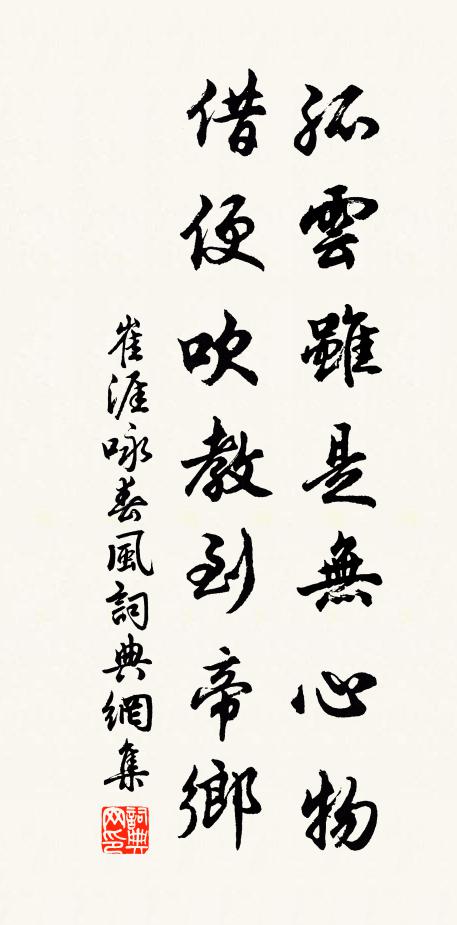 孤雲雖是無心物
借便吹教到帝鄉
崔涯咏春風詞典網集
詞典
网印